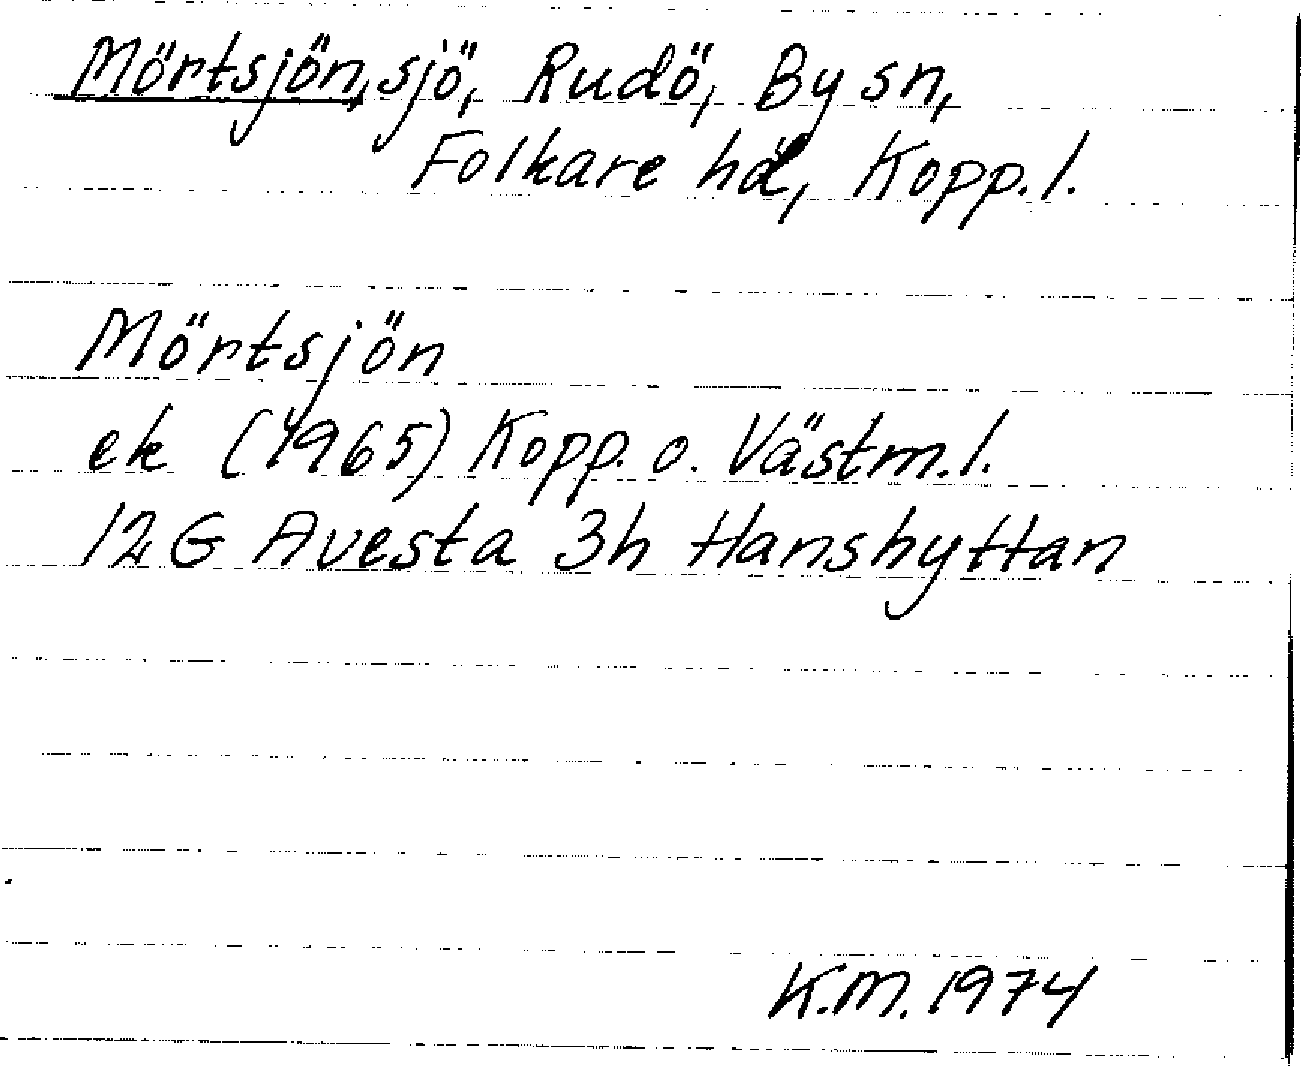 Mörtsjön, sjö, Rudö, By sn,
Folkare hd, Kopp. l.
Mörtsjön
ek (1965) Kopp. o. Västm. l.
12 G Avesta 3h Hanshyttan
K.M. 1974